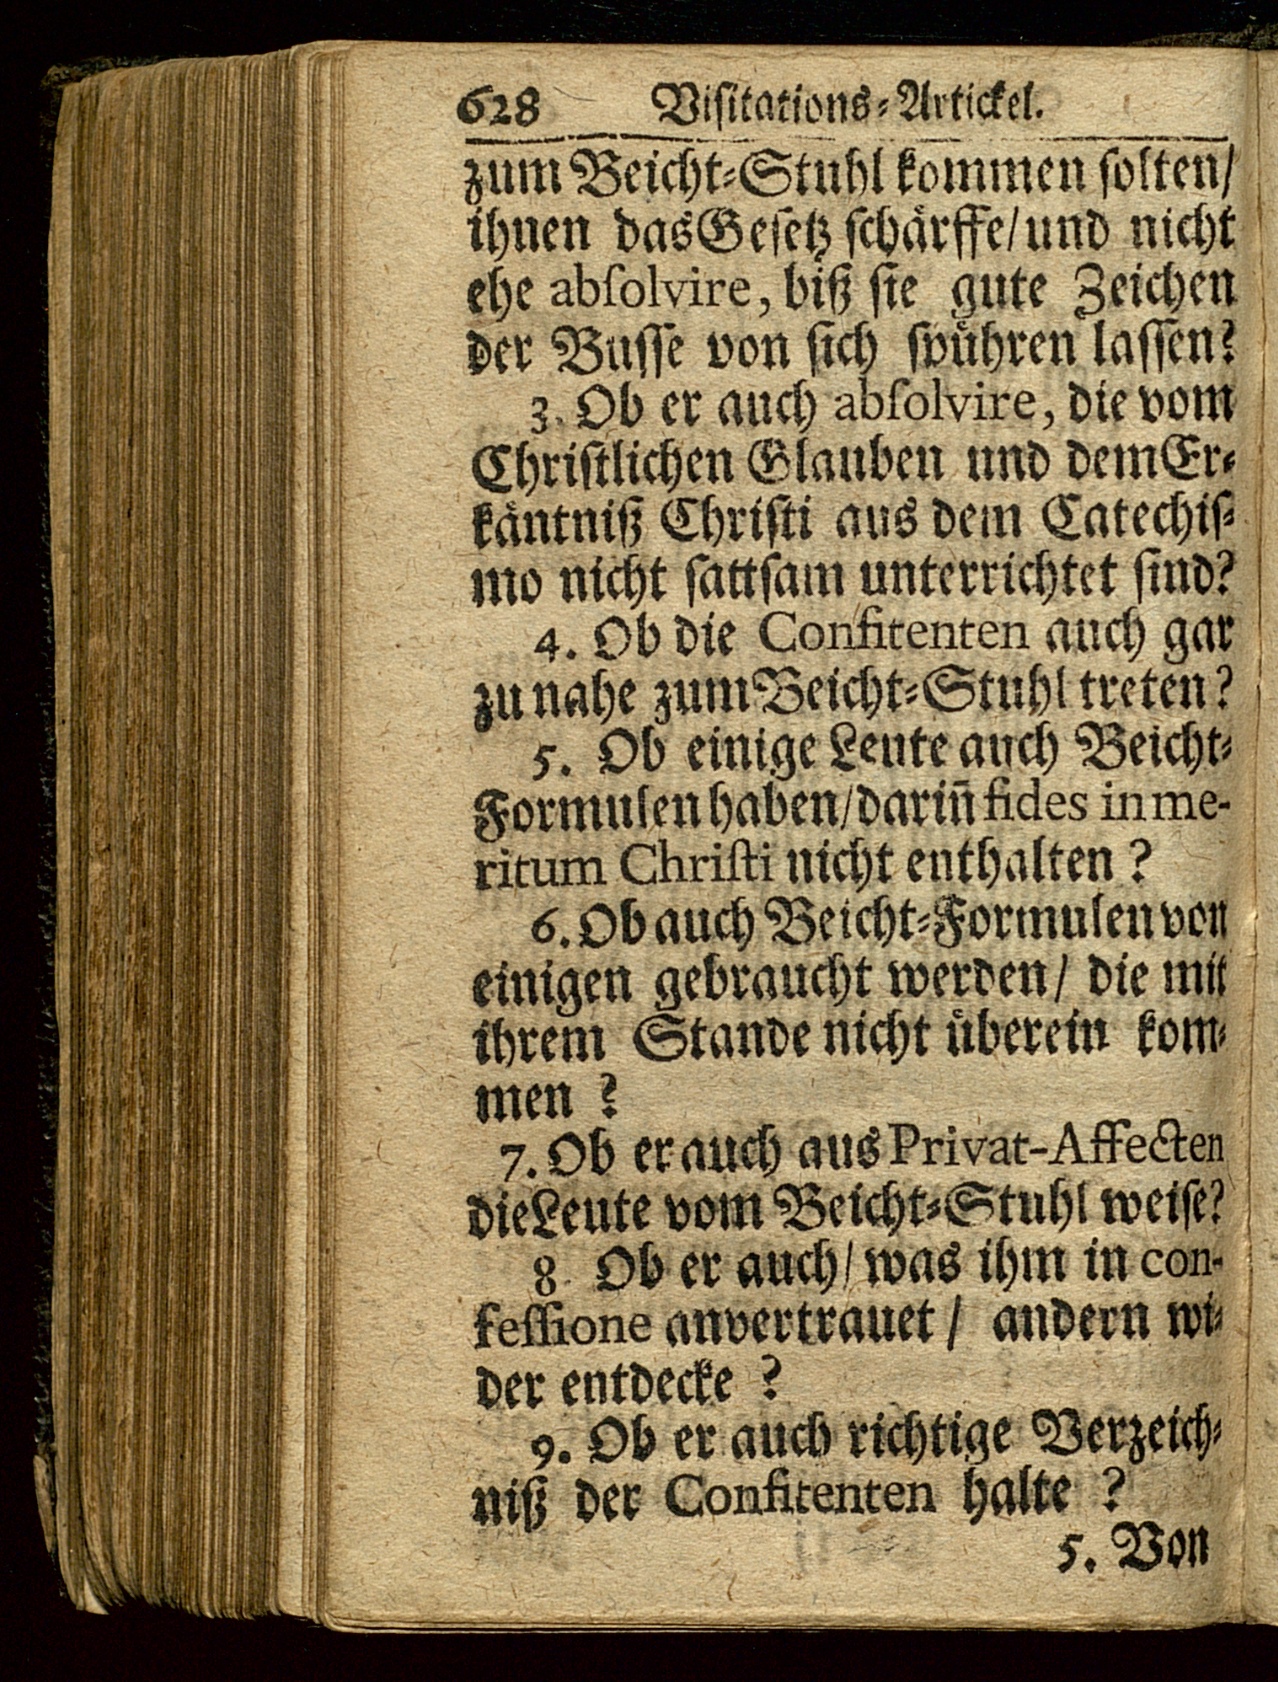 628 Viſitations-Artickel.
zum Beicht-Stuhl kommen ſolten/
ihnen das Geſetz ſchaͤrffe/ und nicht
ehe abſolvire, biß ſie gute Zeichen
der Buſſe von ſich ſpuͤhren laſſen?
3. Ob er auch abſolvire, die vom
Chriſtlichen Glauben und dem Er-
kaͤntniß Chriſti aus dem Catechiſ-
mo nicht ſattſam unterrichtet ſind?
4. Ob die Confitenten auch gar
zu nahe zum Beicht-Stuhl treten?
5. Ob einige Leute auch Beicht-
Formulen haben/ darin̄ fides in me-
ritum Chriſti nicht enthalten?
6. Ob auch Beicht-Formulen von
einigen gebraucht werden/ die mit
ihrem Stande nicht uͤberein kom-
men?
7. Ob er auch aus Privat-Affecten
die Leute vom Beicht-Stuhl weiſe?
8 Ob er auch/ was ihm in con-
feſſione anvertrauet/ andern wi-
der entdecke?
9. Ob er auch richtige Verzeich-
niß der Confitenten halte?
5. Von